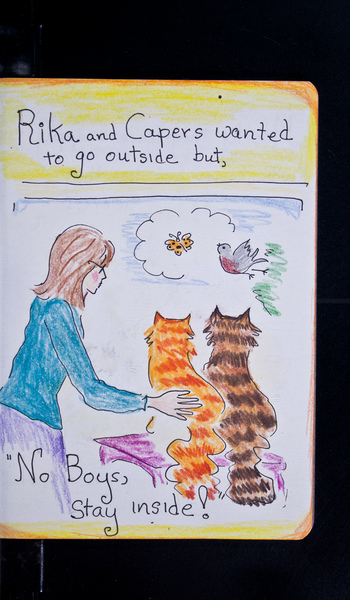 Rika and Capers wanted
to go outside but,
"No Boys,
Stay inside!